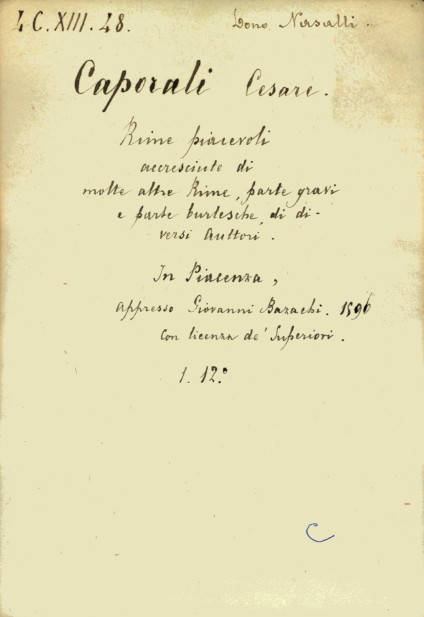 4 C. XIII. 48. Dono Nasalli.
Caporali Cesare.
Rime piacevoli
accresciute di
molte altre Rime, parte gravi
e parte burlesche, di di-
versi Auttori.
In Piacenza,
appresso Giovanni Bazachi. 1596
Con licenza de' Superiori.
1. 12.º
C